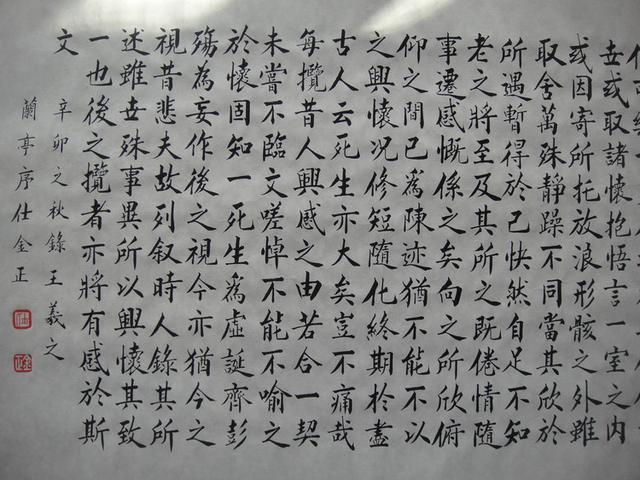 世或取諸懷抱悟言一室之内
或因寄所托放浪形骸之外雖
取舍萬殊静躁不同當其欣於
所遇暫得於己快然自足不知
老之將至及其所之既倦情隨
事遷感慨係之矣向之所欣俯
仰之間已爲陳迹猶不能不以
之興懷况修短隨化終期於盡
古人云死生亦大矣豈不痛哉
每攬昔人興感之由若合一契
未嘗不臨文嗟悼不能不喻之
於懷固知一死生爲虛誕齊彭
殤為妄作後之視今亦猶今之
視昔悲夫故列叙時人錄其所
述雖世殊事異所以興懷其致
一也後之攬者亦將有感於斯
文
辛卯之秋錄王羲之
蘭亭序仕金正